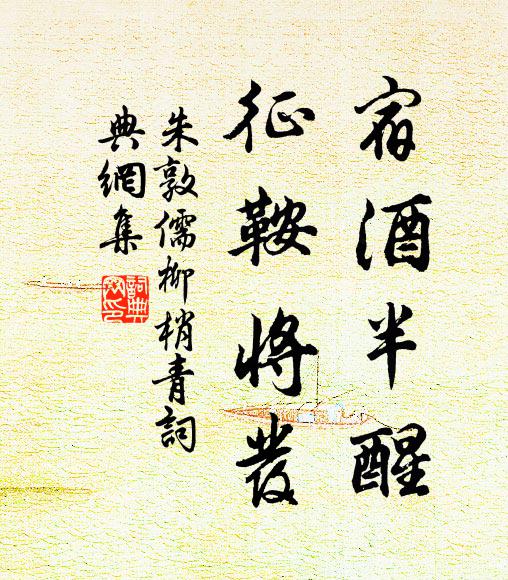 宿酒半醒
征鞍将發
朱敦儒柳梢青詞
典網集
詞典網印